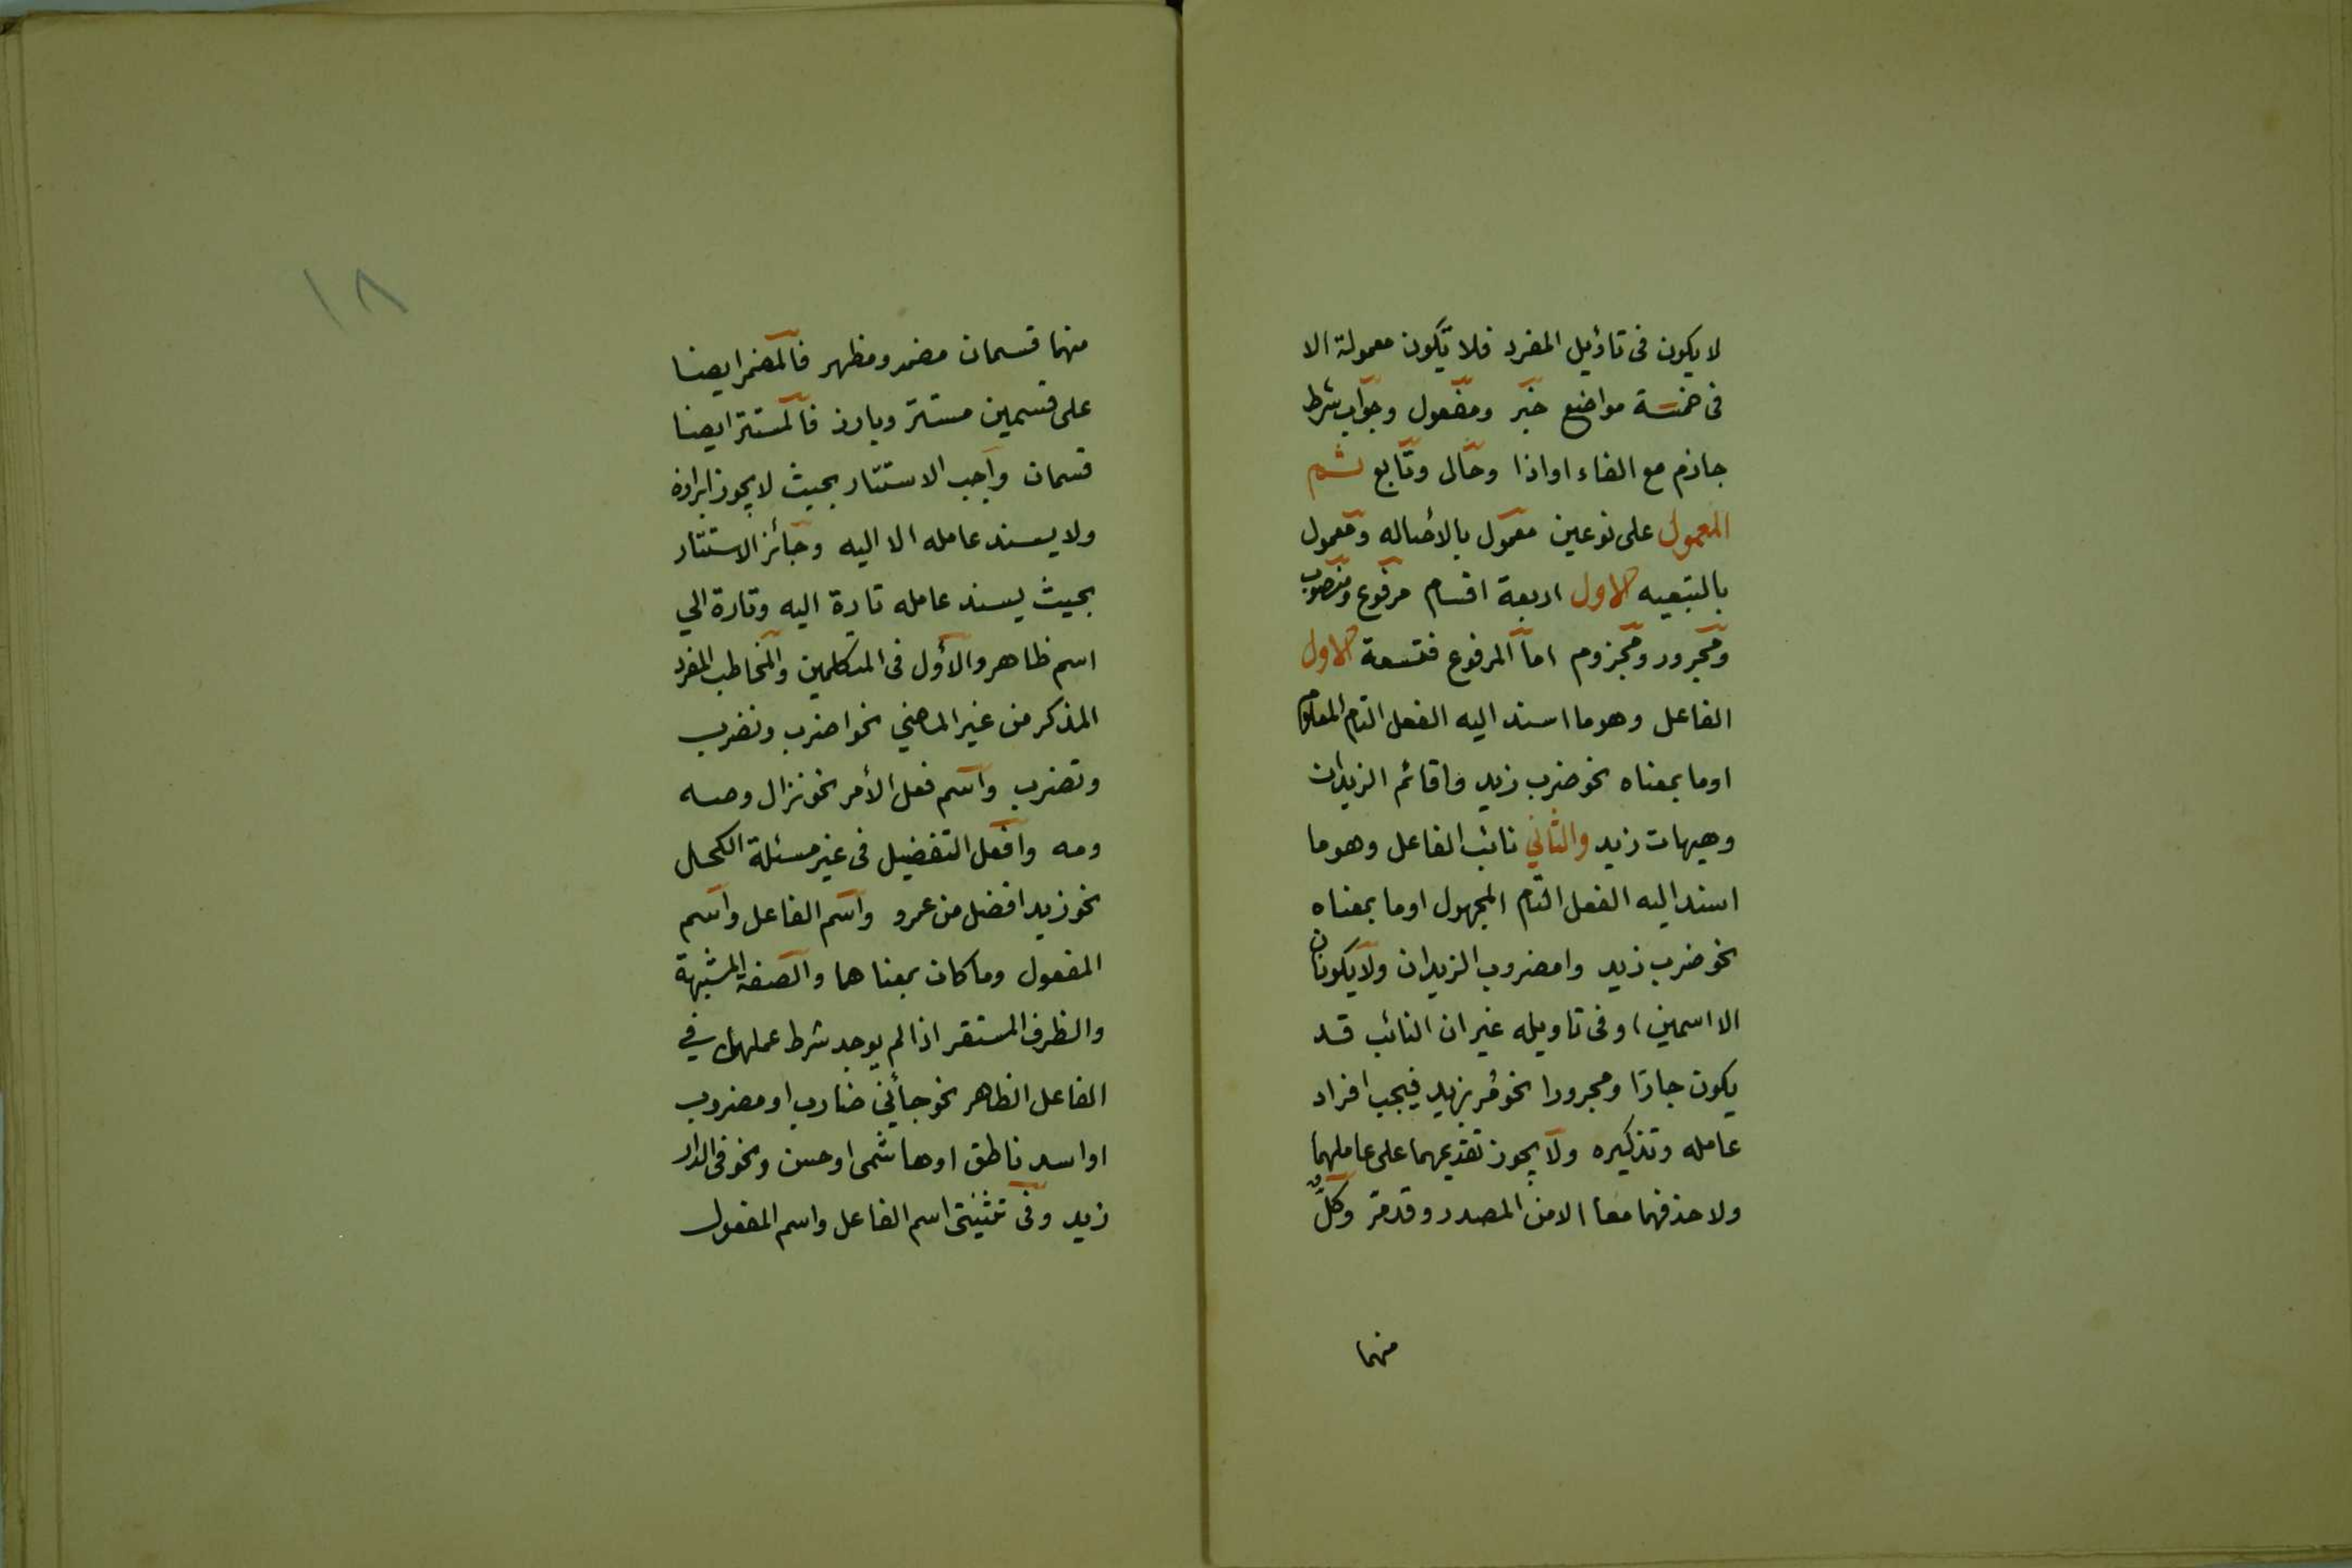 لا يكون فى تاؤيل المفرد فلا تكون معمولة الا
فى خمسة مواضع خبر ومفعول وجواب شرط
جازم مع الفاء او اذا وحال وتابع ثم
المعمول على نوعين معمول بالأصاله ومعمول
بالتبعيه الاول اربعة اقسام مرفوع ومنصوب
ومجرور ومجزوم اما المرفوع فتسعة الاول
الفاعل وهو ما اسند اليه الفعل التام المعلوم
او ما بمعناه نحو ضرب زيد واقائم الزيدان
وهيهات زيد والثاني نائب الفاعل وهو ما
اسند اليه الفعل التام المجهول او ما بمعناه
نحو ضرب زيد وامضروب الزيدان ولا يكونان
الا اسمين او فى تاويله غير ان النائب قد
يكون جارا ومجرورا نحو مُر بزيد فيجب افراد
عامله وتذكيره ولا يجوز تقديمهما على عاملهما
ولا حذفهما معا الا من المصدر وقد مر وكل
منهما
١٨
منهما قسمان مضمر ومظهر فالمضمر ايضا
على قسمين مستتر وبارز فالمستتر ايضا
قسمان واجب الاستتار بحيث لا يجوز ابرازه
ولا يسند عامله الا اليه وجائز الاستتار
بحيث يسند عامله تارة اليه وتارة الي
اسم ظاهر والأول فى المتكلمين والمخاطب المفرد
المذكر من غير الماضي نحو اضرب ونضرب
وتضرب واسم فعل الأمر نحو نزال وصه
ومه وافعل التفضيل فى غير مسئلة الكحل
نحو زيد افضل من عمرو واسم الفاعل واسم
المفعول وما كان بمعناهما والصفة المشبهة
والظرف المستقر اذا لم يوجد شرط عملها في
الفاعل الظاهر نحو جائني ضارب او مضروب
او اسد ناطق او هاشمى او حسن ونحو فى الدار
زيد وفى تثنيتى اسم الفاعل واسم المفعول